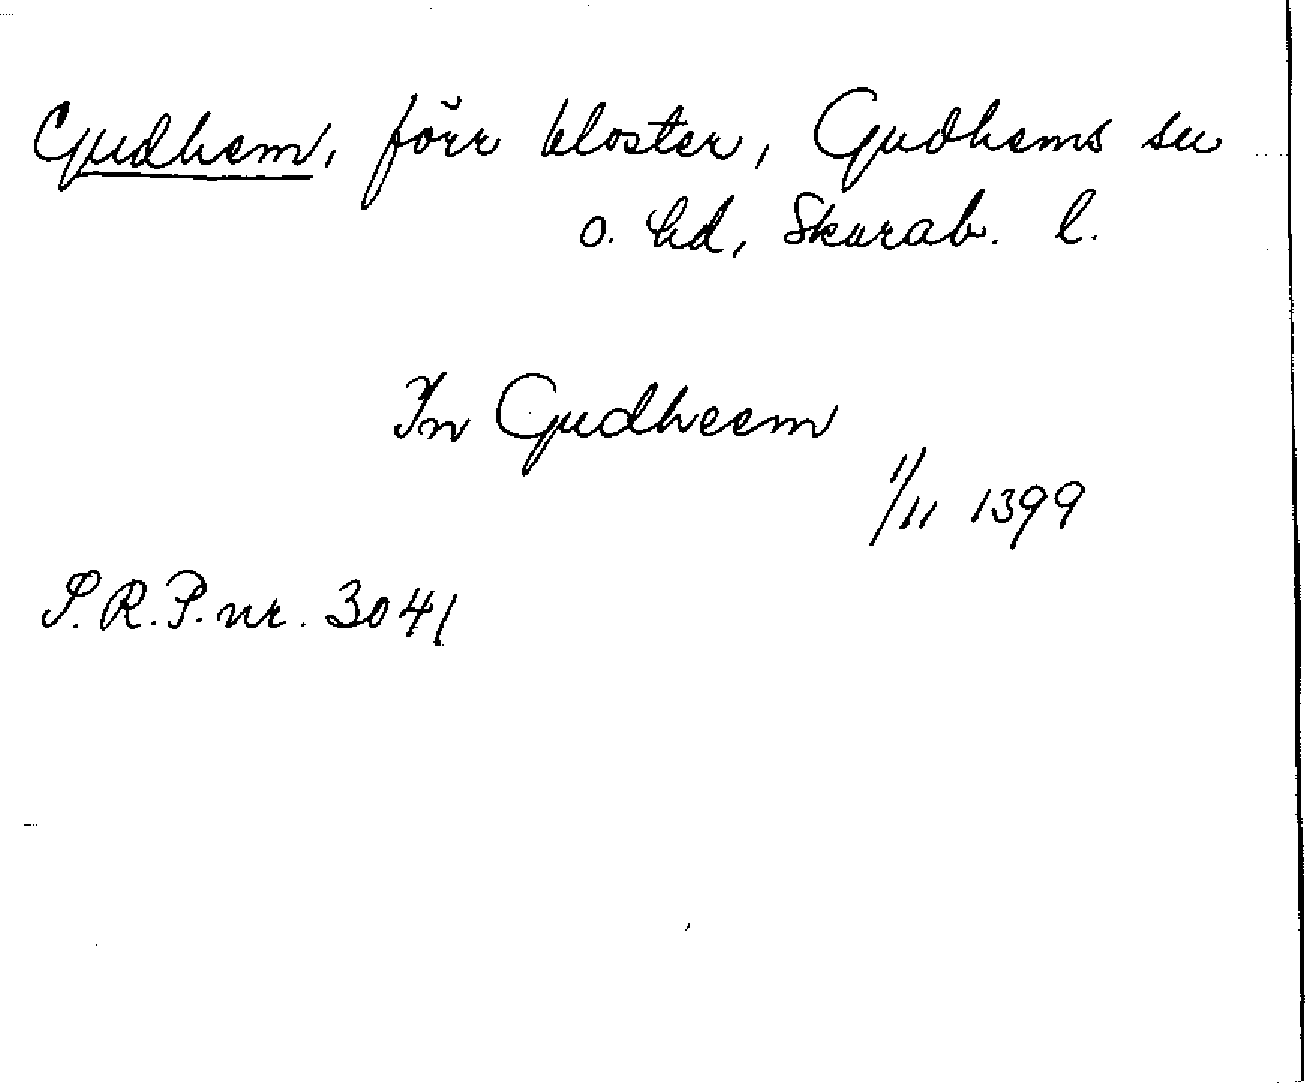 Gudhem, förr kloster, Gudhems sn
o. hd, Skarab. l.
In Gudheem
11/11 1399
P.R.P. nr. 3041